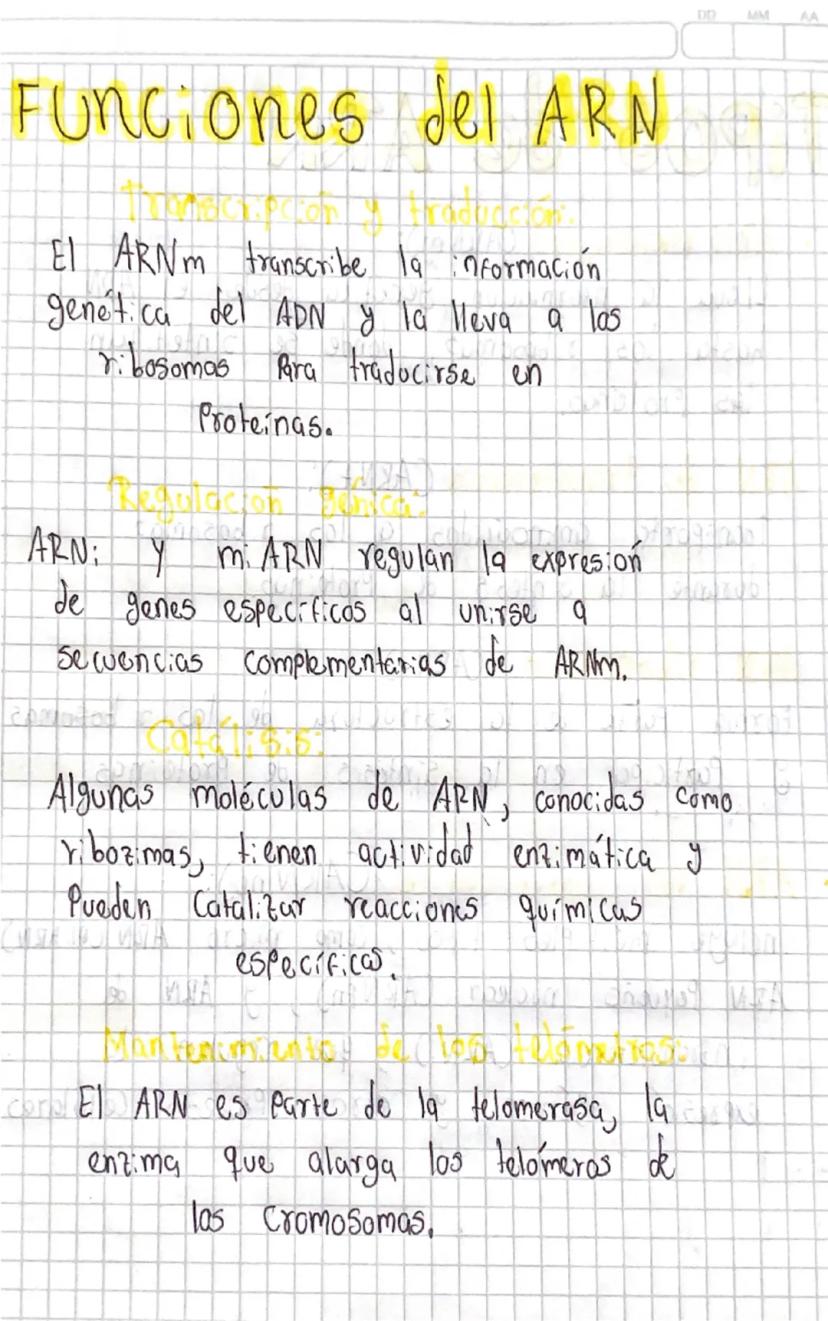 DD MM AA
Funciones del ARN
Transcripción y traducción:
El ARNm transcribe la información
genética del ADN y la lleva a los
ribosomas Para traducirse en
Proteínas.
Regulación génica:
ARNi y miARN regulan la expresión
de genes específicos al unirse a
secuencias complementarias de ARNm.
Catálisis:
Algunas moléculas de ARN, conocidas como
ribozimas, tienen actividad enzimática y
Pueden Catalizar reacciones químicas
específicas.
Mantenimiento de los telómetros:
El ARN es Parte de la telomerasa, la
enzima que alarga los telómeros de
los Cromosomas.